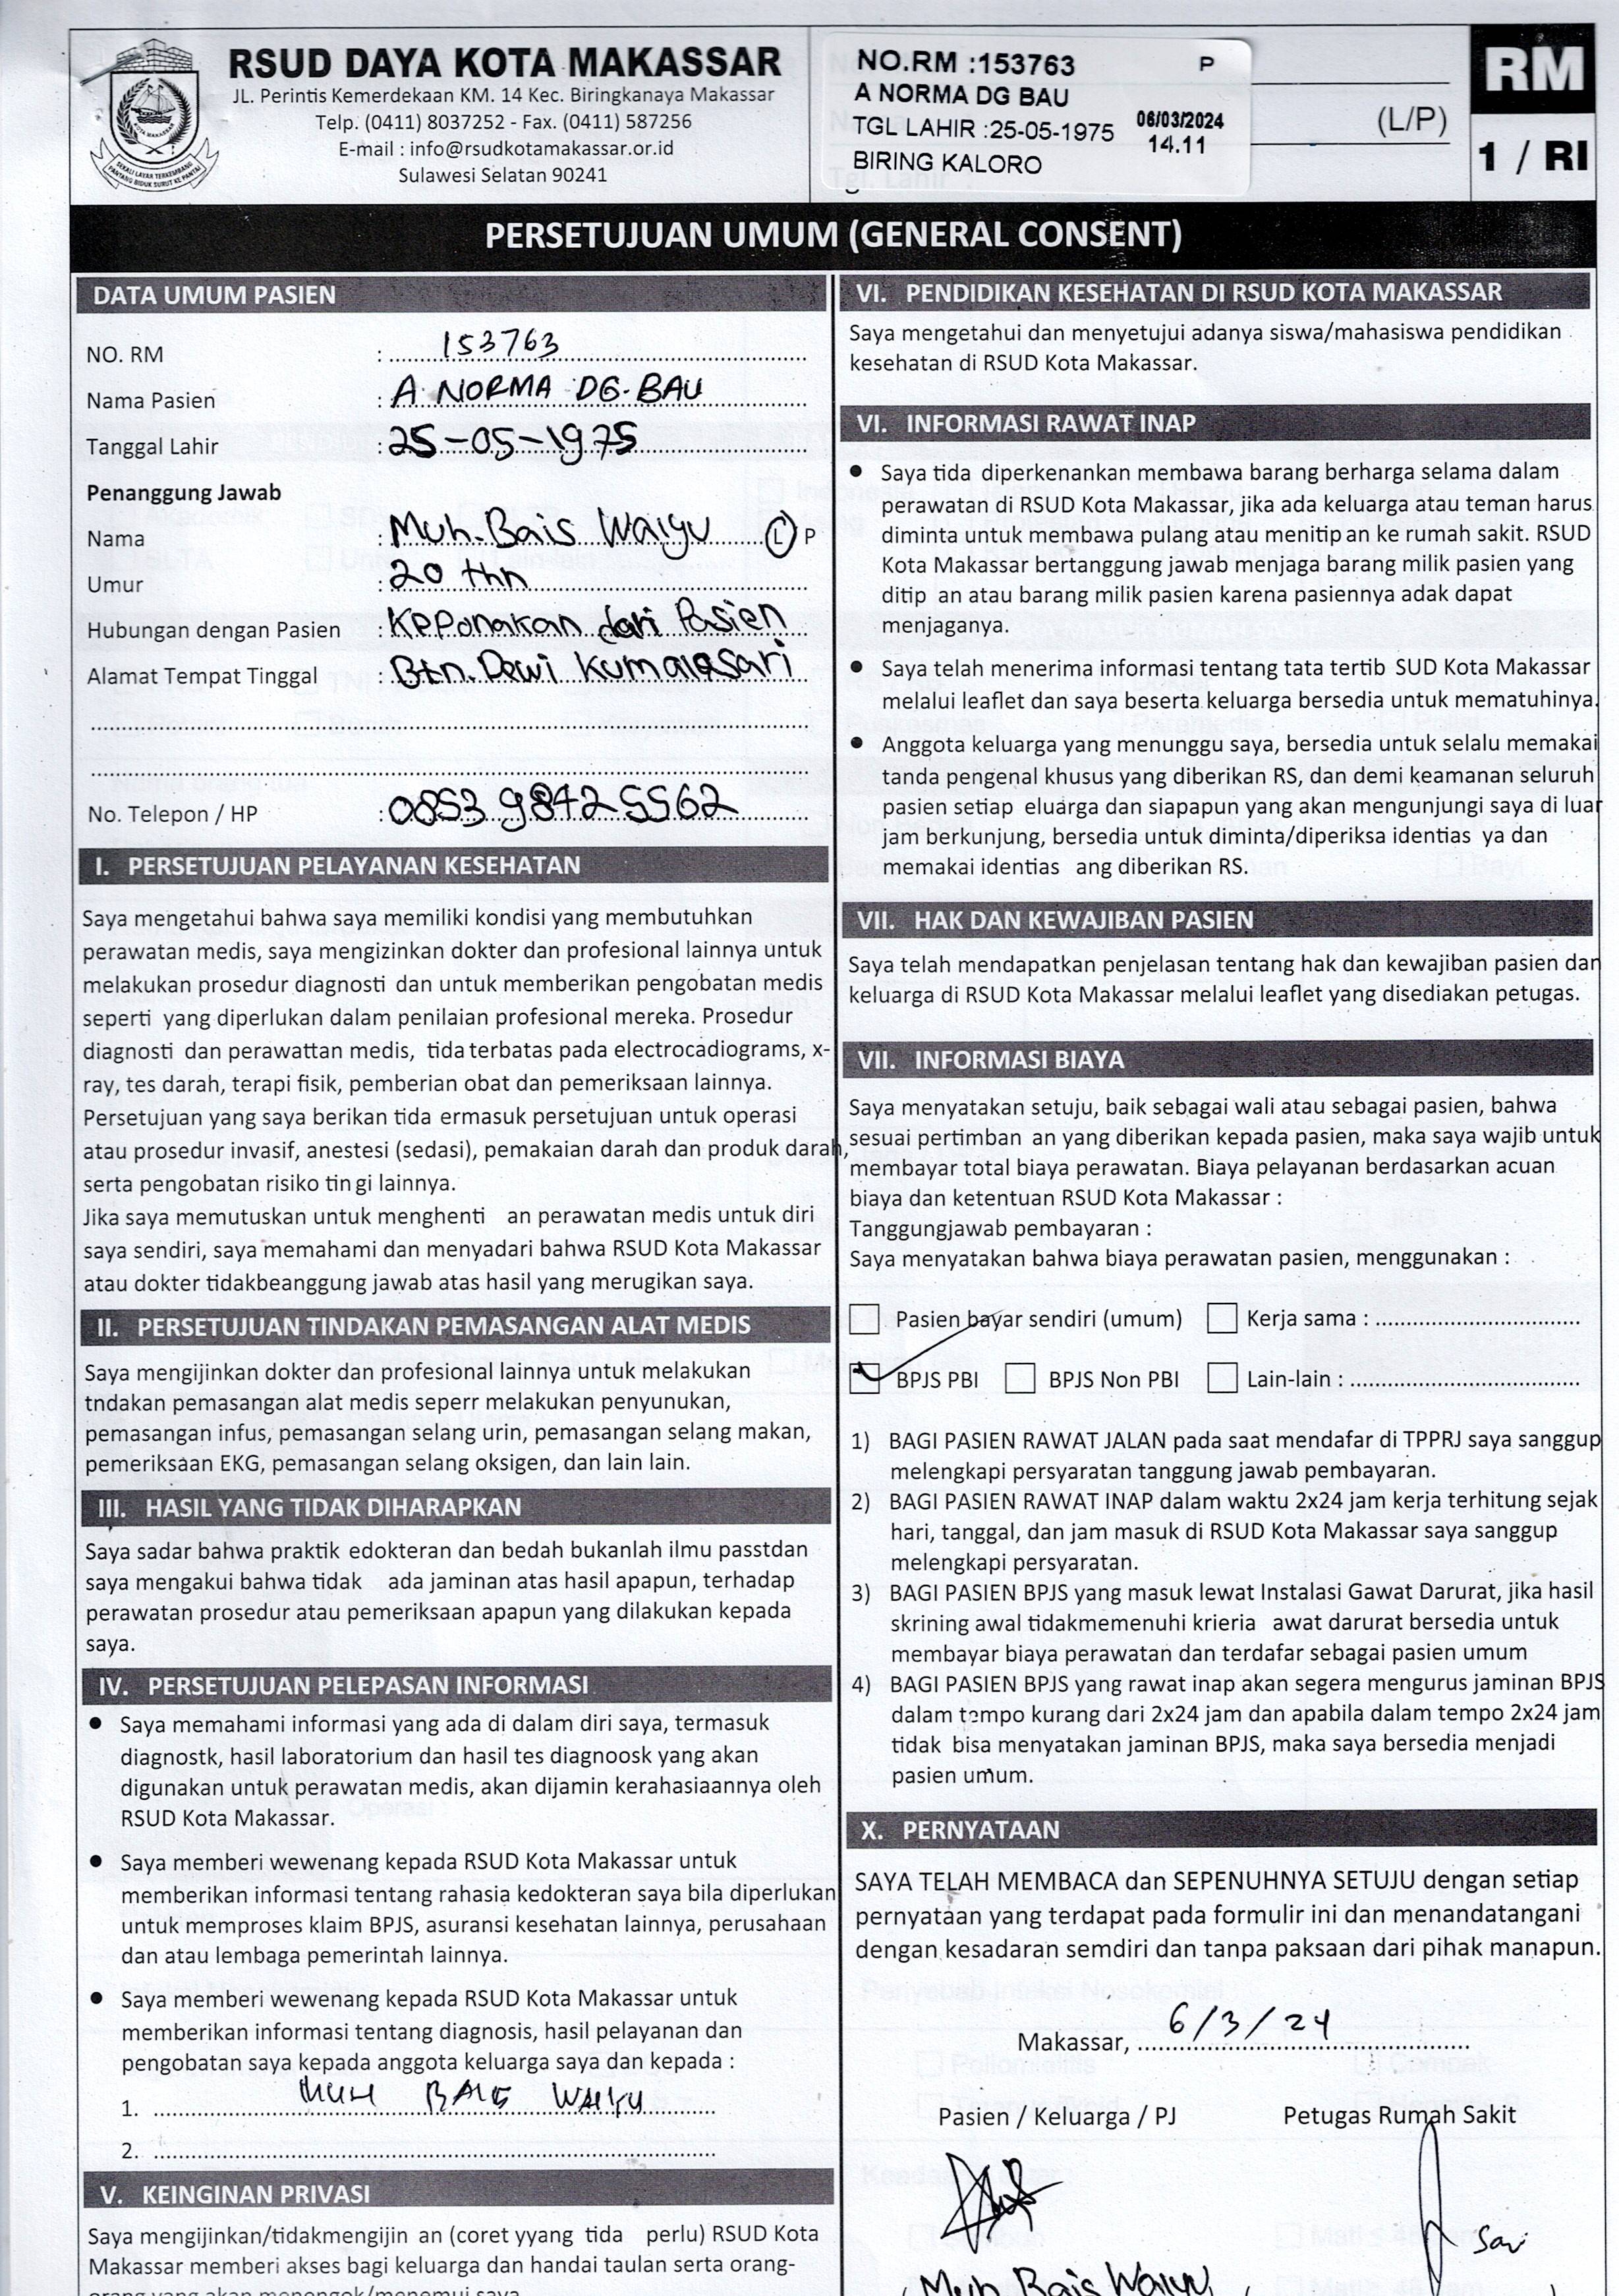 RSUD DAYA KOTA MAKASSAR
JL. Perintis Kemerdekaan KM. 14 Kec. Biringkanaya Makassar
Telp. (0411) 8037252 - Fax. (0411) 587256
E-mail : info@rsudkotamakassar.or.id
Sulawesi Selatan 90241
NO.RM :153763 P
A NORMA DG BAU
TGL LAHIR :25-05-1975 06/03/2024
14.11
BIRING KALORO
(L/P)
RM
1 / RI
PERSETUJUAN UMUM (GENERAL CONSENT)
DATA UMUM PASIEN
NO. RM : 153763
Nama Pasien : A NORMA DG. BAU
Tanggal Lahir : 25-05-1975
Penanggung Jawab
Nama : Muh. Bais Waiyu L P
Umur : 20 thn
Hubungan dengan Pasien : Keponakan dari Pasien
Alamat Tempat Tinggal : Btn. Dewi Kumalasari
No. Telepon / HP : 0853 9842 5562
I. PERSETUJUAN PELAYANAN KESEHATAN
Saya mengetahui bahwa saya memiliki kondisi yang membutuhkan
perawatan medis, saya mengizinkan dokter dan profesional lainnya untuk
melakukan prosedur diagnosti dan untuk memberikan pengobatan medis
seperti yang diperlukan dalam penilaian profesional mereka. Prosedur
diagnosti dan perawattan medis, tida terbatas pada electrocadiograms, x-
ray, tes darah, terapi fisik, pemberian obat dan pemeriksaan lainnya.
Persetujuan yang saya berikan tida ermasuk persetujuan untuk operasi
atau prosedur invasif, anestesi (sedasi), pemakaian darah dan produk darah,
serta pengobatan risiko tin gi lainnya.
Jika saya memutuskan untuk menghenti an perawatan medis untuk diri
saya sendiri, saya memahami dan menyadari bahwa RSUD Kota Makassar
atau dokter tidakbeanggung jawab atas hasil yang merugikan saya.
II. PERSETUJUAN TINDAKAN PEMASANGAN ALAT MEDIS
Saya mengijinkan dokter dan profesional lainnya untuk melakukan
tndakan pemasangan alat medis seperr melakukan penyunukan,
pemasangan infus, pemasangan selang urin, pemasangan selang makan,
pemeriksaan EKG, pemasangan selang oksigen, dan lain lain.
III. HASIL YANG TIDAK DIHARAPKAN
Saya sadar bahwa praktik edokteran dan bedah bukanlah ilmu passtdan
saya mengakui bahwa tidak ada jaminan atas hasil apapun, terhadap
perawatan prosedur atau pemeriksaan apapun yang dilakukan kepada
saya.
IV. PERSETUJUAN PELEPASAN INFORMASI
● Saya memahami informasi yang ada di dalam diri saya, termasuk
diagnostk, hasil laboratorium dan hasil tes diagnoosk yang akan
digunakan untuk perawatan medis, akan dijamin kerahasiaannya oleh
RSUD Kota Makassar.
● Saya memberi wewenang kepada RSUD Kota Makassar untuk
memberikan informasi tentang rahasia kedokteran saya bila diperlukan
untuk memproses klaim BPJS, asuransi kesehatan lainnya, perusahaan
dan atau lembaga pemerintah lainnya.
● Saya memberi wewenang kepada RSUD Kota Makassar untuk
memberikan informasi tentang diagnosis, hasil pelayanan dan
pengobatan saya kepada anggota keluarga saya dan kepada :
1. MUH BAIS WAIYU
2.
V. KEINGINAN PRIVASI
Saya mengijinkan/tidakmengijin an (coret yyang tida perlu) RSUD Kota
Makassar memberi akses bagi keluarga dan handai taulan serta orang-
orang yang akan menengok/menemui saya
VI. PENDIDIKAN KESEHATAN DI RSUD KOTA MAKASSAR
Saya mengetahui dan menyetujui adanya siswa/mahasiswa pendidikan
kesehatan di RSUD Kota Makassar.
VI. INFORMASI RAWAT INAP
● Saya tida diperkenankan membawa barang berharga selama dalam
perawatan di RSUD Kota Makassar, jika ada keluarga atau teman harus
diminta untuk membawa pulang atau menitip an ke rumah sakit. RSUD
Kota Makassar bertanggung jawab menjaga barang milik pasien yang
ditip an atau barang milik pasien karena pasiennya adak dapat
menjaganya.
● Saya telah menerima informasi tentang tata tertib SUD Kota Makassar
melalui leaflet dan saya beserta keluarga bersedia untuk mematuhinya.
● Anggota keluarga yang menunggu saya, bersedia untuk selalu memakai
tanda pengenal khusus yang diberikan RS, dan demi keamanan seluruh
pasien setiap eluarga dan siapapun yang akan mengunjungi saya di luar
jam berkunjung, bersedia untuk diminta/diperiksa identias ya dan
memakai identias ang diberikan RS.
VII. HAK DAN KEWAJIBAN PASIEN
Saya telah mendapatkan penjelasan tentang hak dan kewajiban pasien dan
keluarga di RSUD Kota Makassar melalui leaflet yang disediakan petugas.
VII. INFORMASI BIAYA
Saya menyatakan setuju, baik sebagai wali atau sebagai pasien, bahwa
sesuai pertimban an yang diberikan kepada pasien, maka saya wajib untuk
membayar total biaya perawatan. Biaya pelayanan berdasarkan acuan
biaya dan ketentuan RSUD Kota Makassar :
Tanggungjawab pembayaran :
Saya menyatakan bahwa biaya perawatan pasien, menggunakan :
Pasien bayar sendiri (umum) Kerja sama :
BPJS PBI BPJS Non PBI Lain-lain :
1) BAGI PASIEN RAWAT JALAN pada saat mendafar di TPPRJ saya sanggup
melengkapi persyaratan tanggung jawab pembayaran.
2) BAGI PASIEN RAWAT INAP dalam waktu 2x24 jam kerja terhitung sejak
hari, tanggal, dan jam masuk di RSUD Kota Makassar saya sanggup
melengkapi persyaratan.
3) BAGI PASIEN BPJS yang masuk lewat Instalasi Gawat Darurat, jika hasil
skrining awal tidakmemenuhi krieria awat darurat bersedia untuk
membayar biaya perawatan dan terdafar sebagai pasien umum
4) BAGI PASIEN BPJS yang rawat inap akan segera mengurus jaminan BPJS
dalam tempo kurang dari 2x24 jam dan apabila dalam tempo 2x24 jam
tidak bisa menyatakan jaminan BPJS, maka saya bersedia menjadi
pasien umum.
X. PERNYATAAN
SAYA TELAH MEMBACA dan SEPENUHNYA SETUJU dengan setiap
pernyataan yang terdapat pada formulir ini dan menandatangani
dengan kesadaran semdiri dan tanpa paksaan dari pihak manapun.
Makassar, 6/3/24
Pasien / Keluarga / PJ Petugas Rumah Sakit
Sari
Muh Bais Waiyu